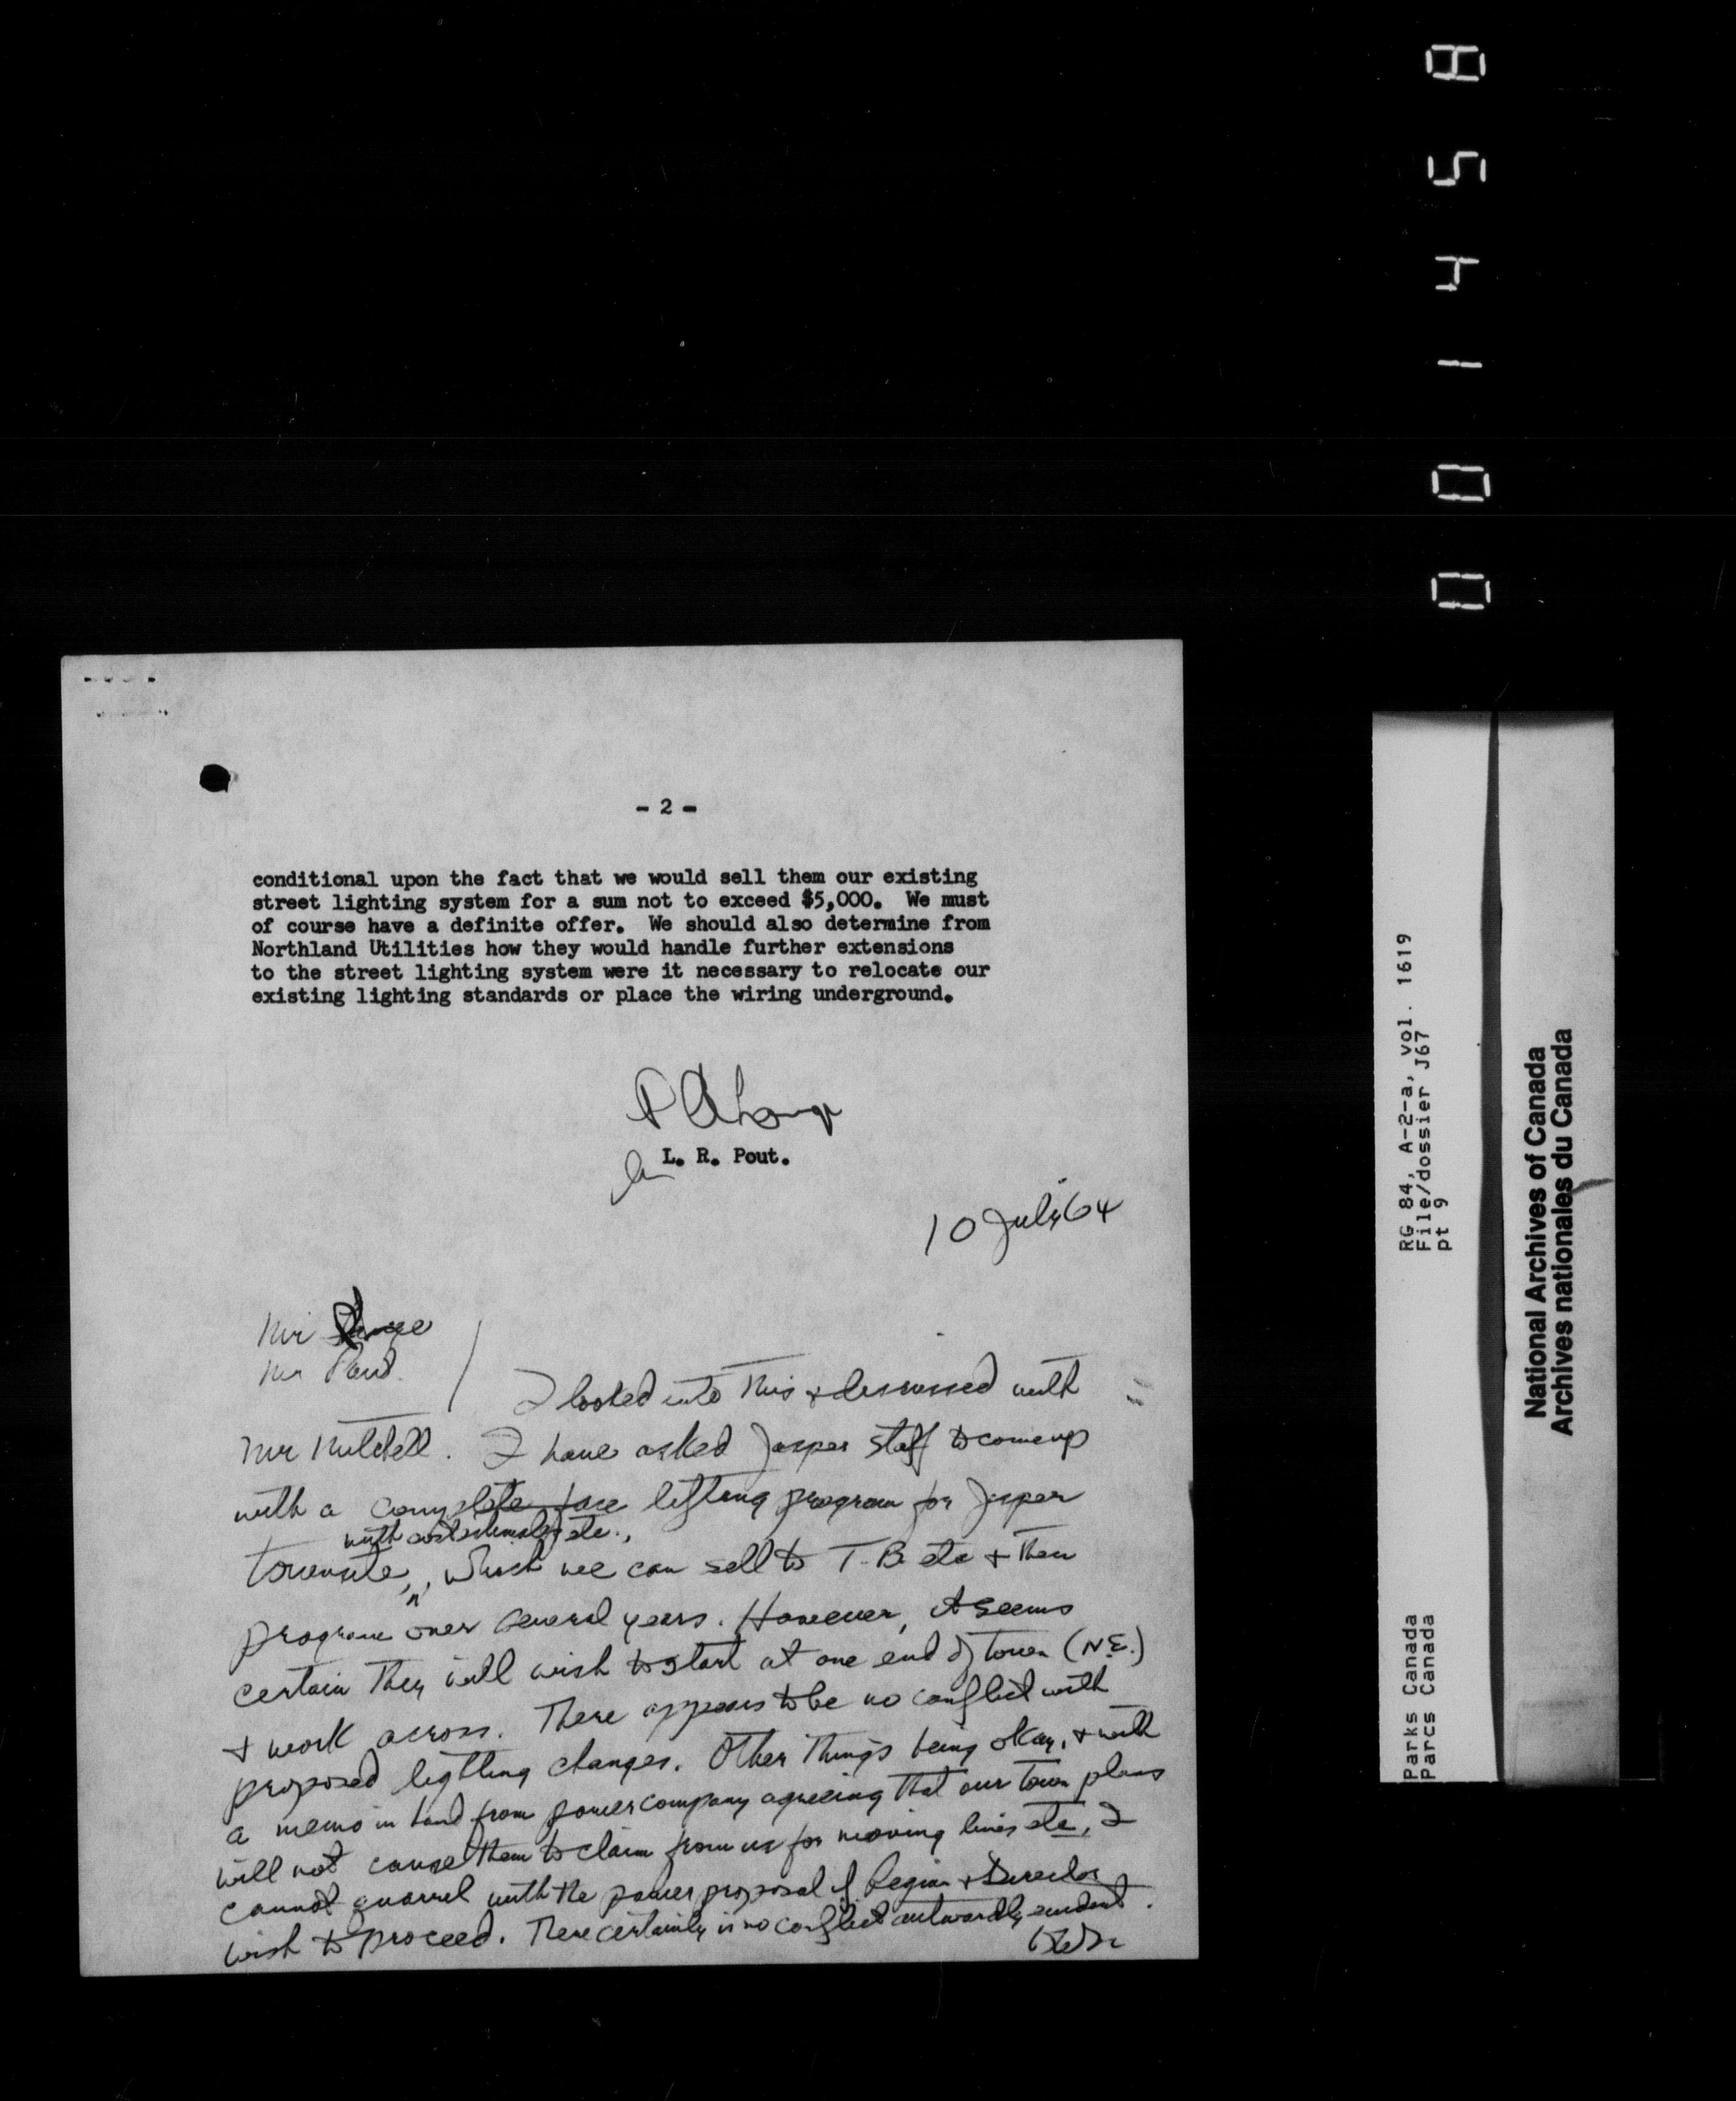 - 2 -
conditional upon the fact that we would sell them our existing
street lighting system for a sum not to exceed $5,000. We must
of course have a definite offer. We should also determine from
Northland Utilities how they would handle further extensions
to the street lighting system were it necessary to relocate our
existing lighting standards or place the wiring underground.
L. R. Pout.
10 July 64
Mr
Mr Pout.
I looked into this & discussed with
Mr Mitchell. I have asked Jasper staff to come up
with a complete face lifting program for Jasper
with cost estimates etc.,
townsite, which we can sell to T.B. etc & then
program over several years. However, it seems
certain they will wish to start at one end of town (N.E.)
& work across. There appears to be no conflict with
proposed lighting changes. Other things being okay, & with
a memo in hand from power company agreeing that our town plans
will not cause them to claim from us for moving lines etc, I
cannot quarrel with the power proposal if Region & Director
wish to proceed. There certainly is no conflict outwardly evident.
RG 84, A-2-a, vol. 1619
File/dossier J67
pt 9
Parks Canada
Parcs Canada
National Archives of Canada
Archives nationales du Canada